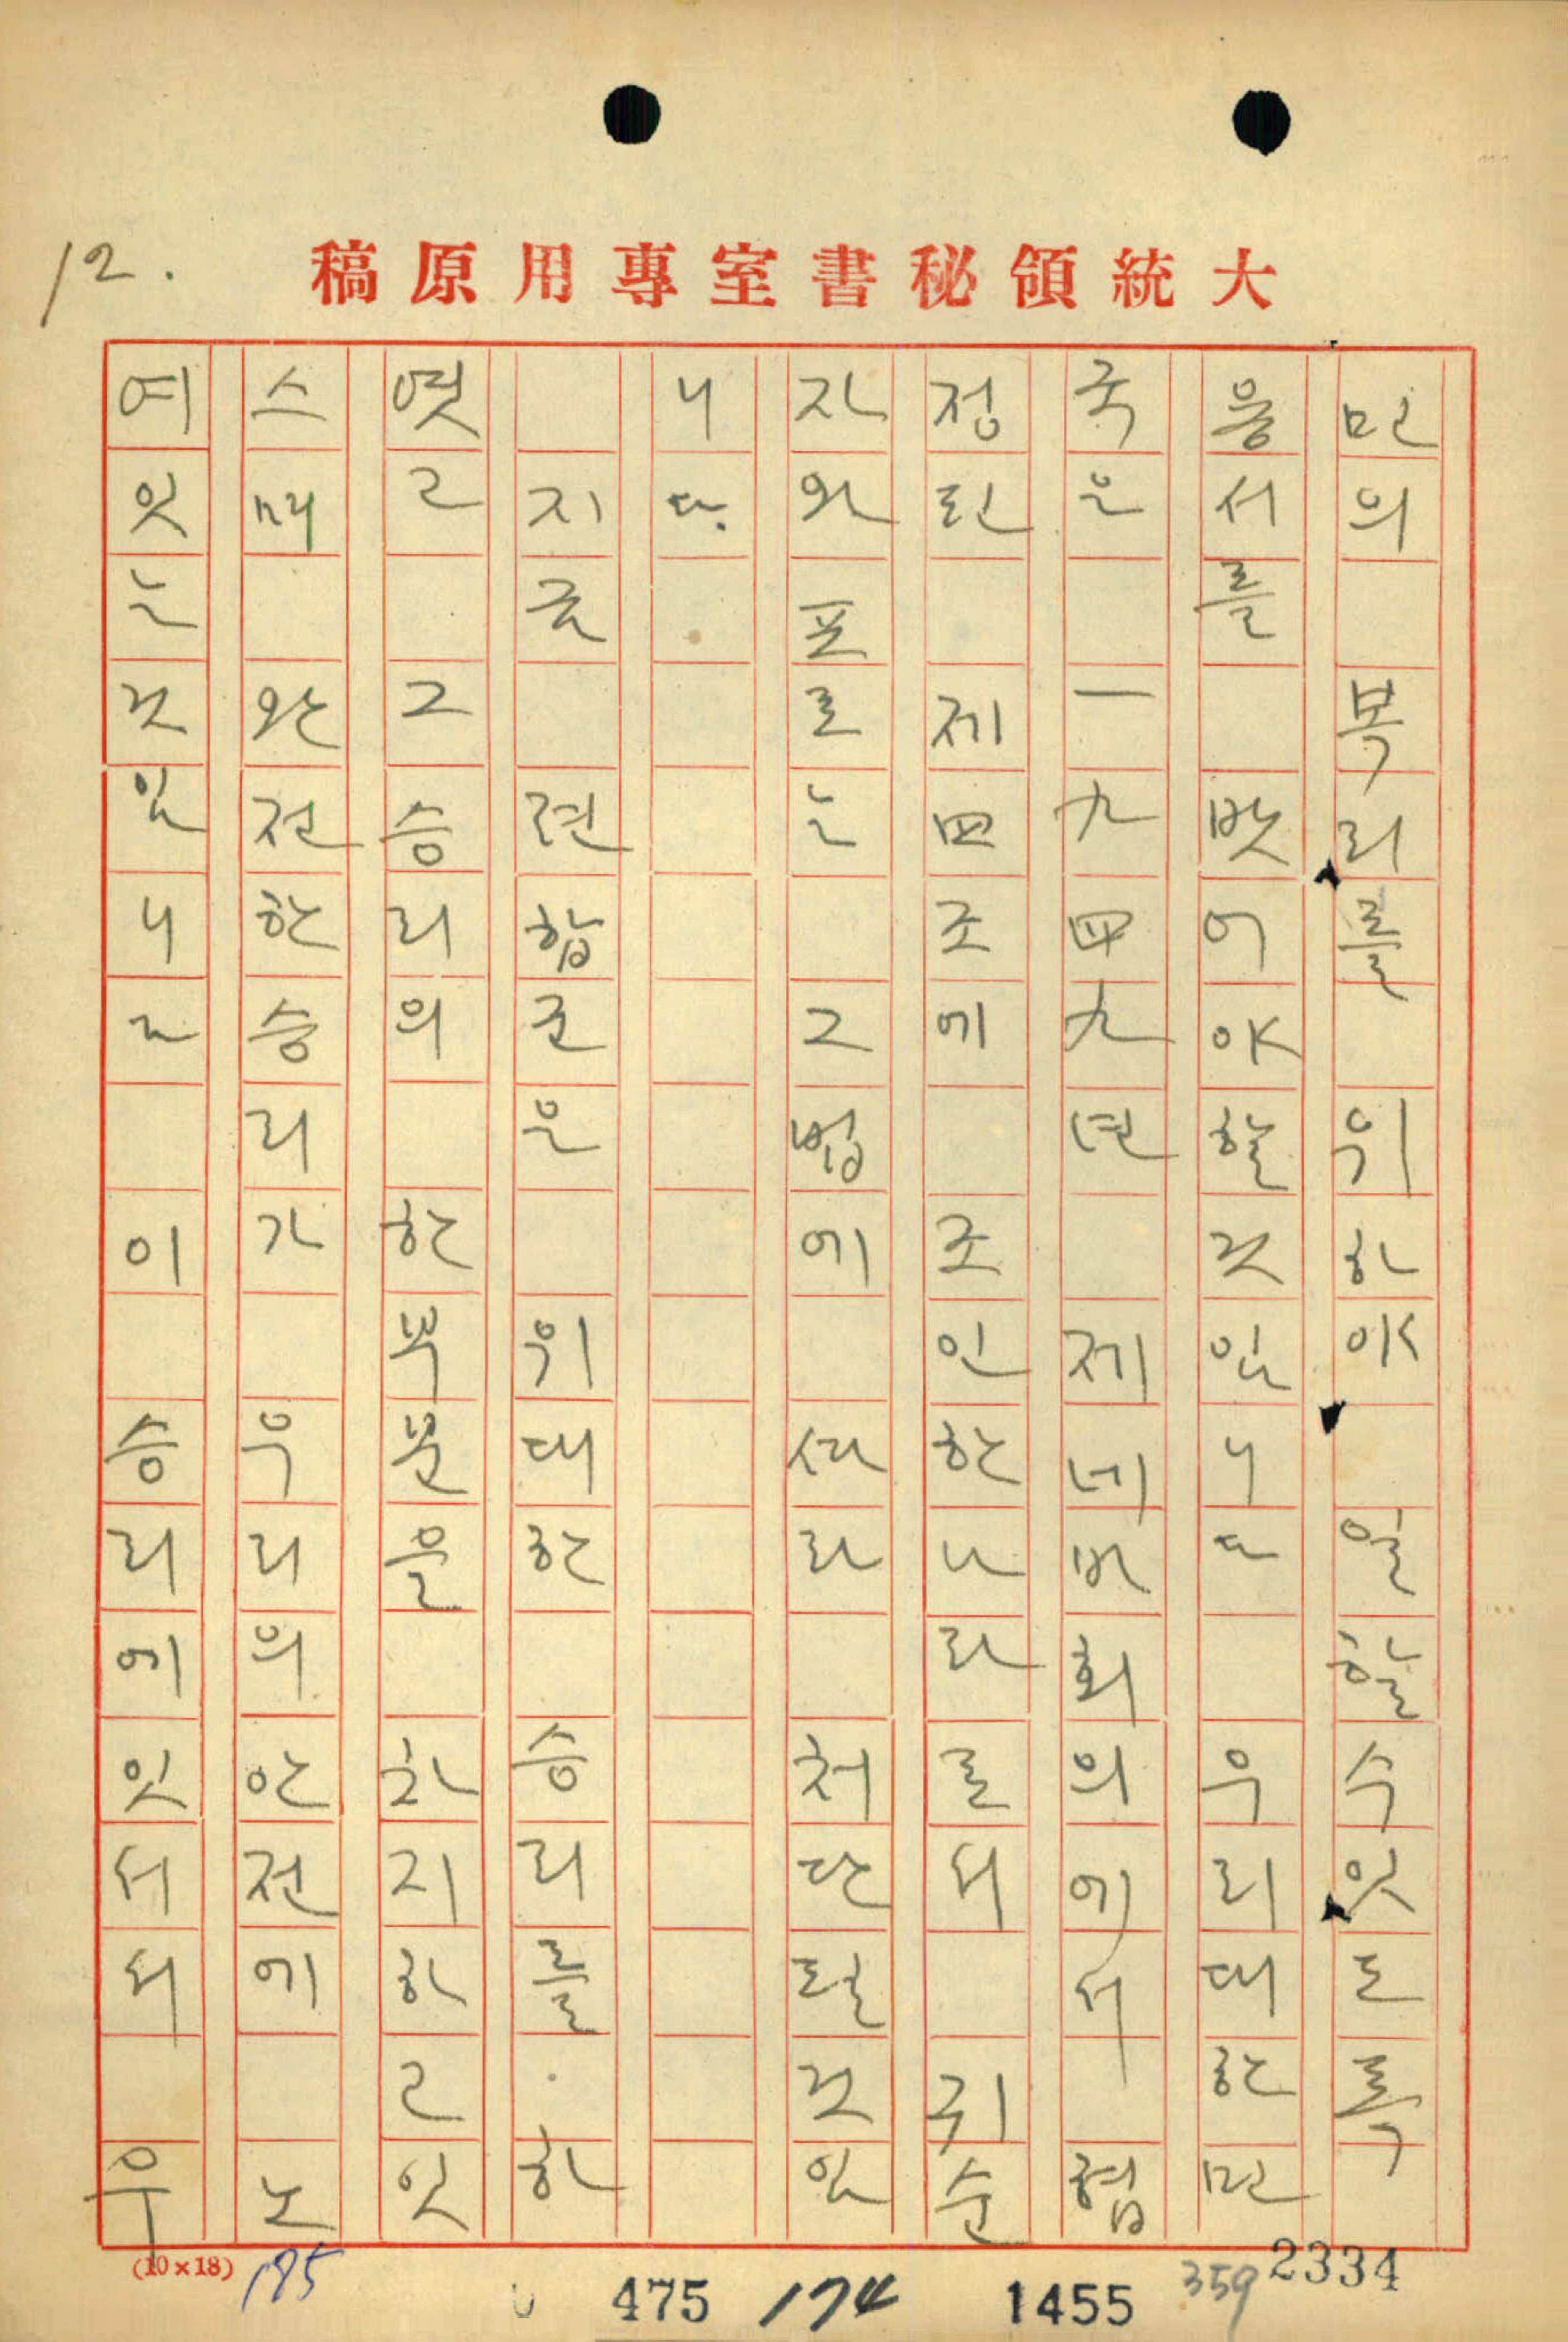 12.
大統領秘書室專用原稿
민의 복리를 위하야 일할수잇도록
용서를 밧어야할것입니다 우리대한민
국은 一九四九년 제네바회의에서 협
정된 제四조에 조인한나라로서 귀순
자와포로는 그법에 ᄯᅡ라 처단될것입
니다.
지금 련합군은 위대한 승리를 하
엿고 그승리의 한부분을 차지하고잇
스매 완전한승리가 우리의안전에 노
여잇는것입니다 이 승리에잇서서 우
(10×18) 175 475 174 1455 359 2334